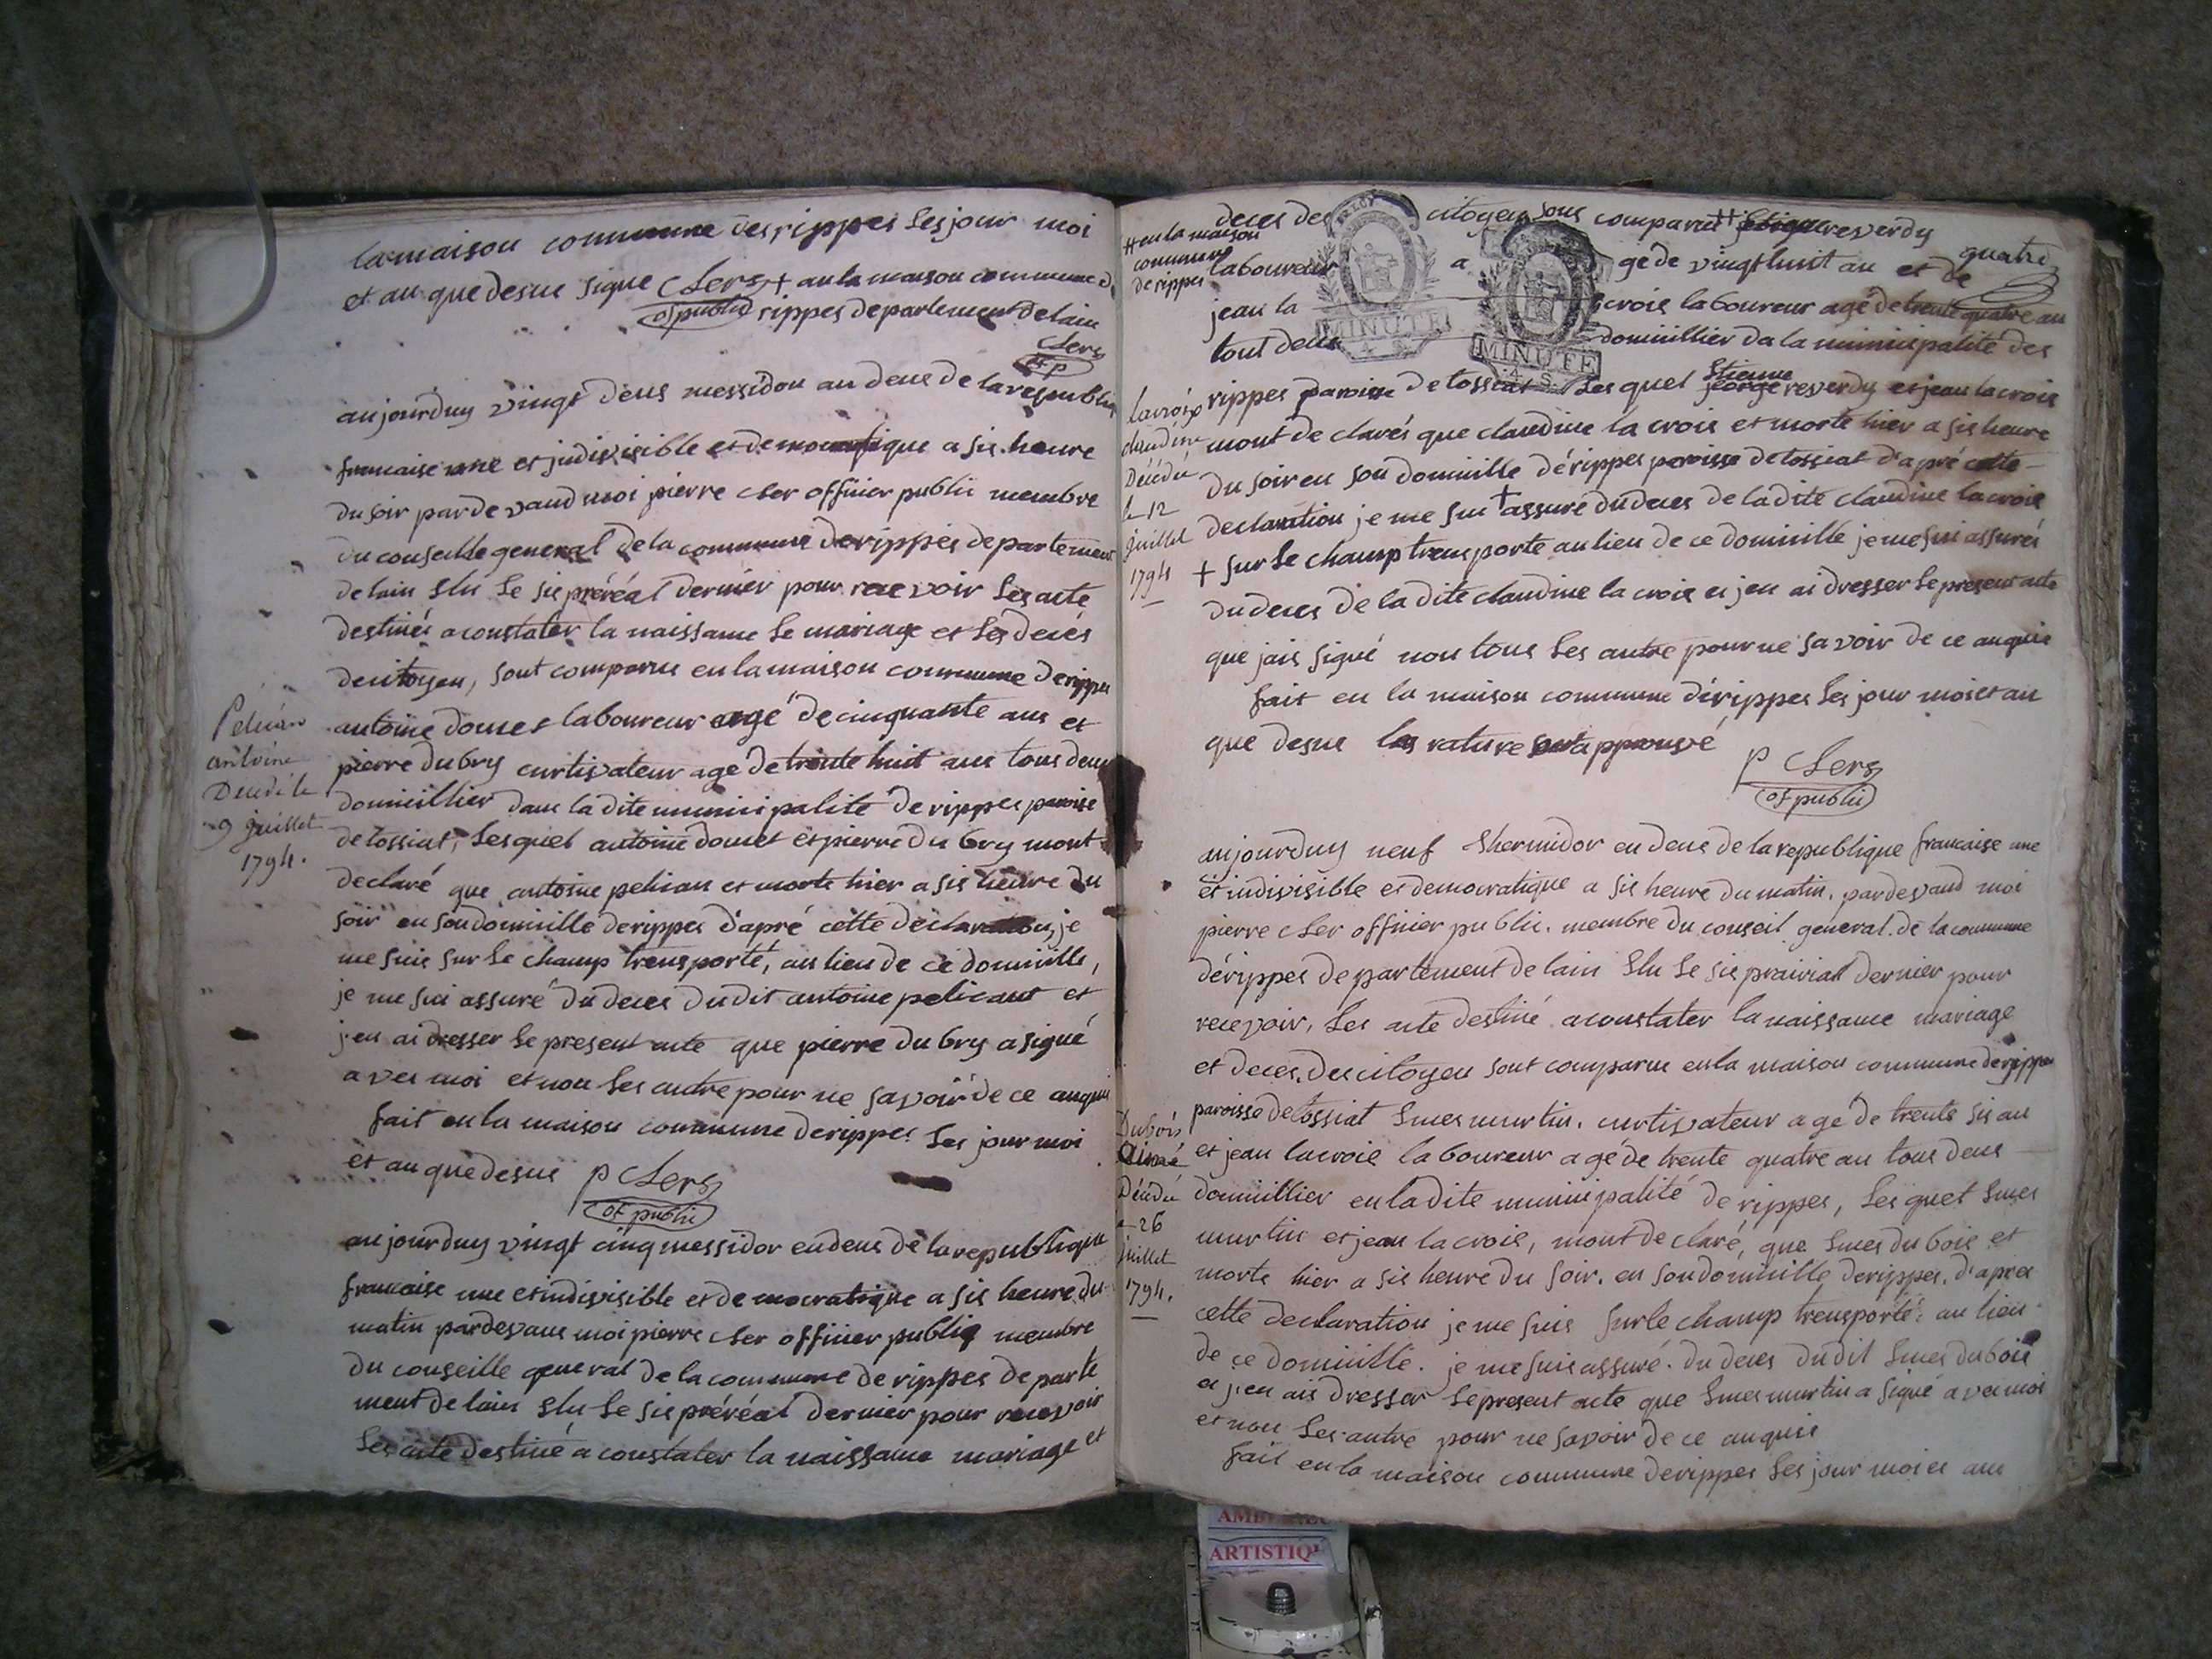 la maison commune des rippes les jour moi
et an que desue signe Clerg + an la maison commune d
of public rippes departement delain
Clerg
of p
aujourduy vingt deus messidor an deus de la republi
francaise une et jndivicible et democratique a sis heure
du soir par de vand moi pierre Cler offiier publi membre
du conseille general de la commune de rippes departement
delain Elu le sis préréal dernier pour recevoir les acte
destinés a constater la naissance le mariage et les decés
de citoyen, sont comparue en la maison commune de rippes
antoine doues laboureur agé de cinquante ans et
pierre dubry curtivateur age de trente huit ans tous deus
domicillier dans la dite municipalite de rippes paroise
de tossiat, lesquel antoine doues et pierre du bry mont
declaré que antoine pelican et morte hier a sis heure du
soir en son domicille de rippes d'apré cette declaration, je
me suis sur le champ transporté, au lieu de ce domicille,
je me sui assuré du decés dudit antoine pelicant et
j'en ai dresser le present acte que pierre du bry a signé
a vec moi et non les autre pour ne savoir de ce anquis
fait en la maison commune de rippes les jour moi
et an que desus P Clerg
of public
Pelican
antoine
Décédé le
9 juillet
1794.
aujourduy vingt cinq messidor en deus de la republique
francaise une et indivisible et democratique a sis heure du
matin pardevant moi pierre Cler offiier public membre
du conseille general de la commune de rippes de parte
ment de lain Elu le sis préréal dernier pour recevoir
les acte destiné a constater la naissance mariage et
deces des citoyen sous comparut ++ reverdy
++ en la maison
commune
de rippes
laboureur a gé de vingt huit an et de quatre
jean la croix laboureur agé de trente quatre an
tout deus domicillier da la municipalité des
rippes paroisse de tossiat Les quel Etienne george reverdy et jean lacroix
mont de clarés que claudine la croix et morte hier a sis heure
du soir en son domicille dérippes paroisse de tossiat d'apré cette
declaration je me sui + assuré du deces de ladite claudine lacroix
+ sur le champ transporte au lieu de ce domicille je me sui assurés
du deces de la dite claudine la croix et jen ai dresser le present acte
que jais signé non tous les autre pour ne savoir de ce anquis
fait en la maison commune dérippes les jour mois et an
que desue les rature sont approuvé
P Clerg
of public
Lacroix
claudine
Décédée
le 12
juillet
1794
aujourduy neuf thermidor en deus de la republique francaise une
et indivisible et democratique a sis heure du matin. pardevand moi
pierre Cler offiier public. membre du conseil general. de la commune
dérippes departement de lain Elu le sis prairial dernier pour
recevoir. Les acte destiné a constater la naissance mariage
et deces. des citoyen sont comparue en la maison commune de rippes
paroisse de tossiat murtin. curtivateur a gé de trente sis an
et jean lacroix laboureur a gé de trente quatre an tous deus
domicillier en ladite municipalité de rippes, Les quel
murtin et jean la croix, mont de claré, que du bois et
morte hier a sis heure du soir. en son domicille derippes. d'apres
cette declaration je me suis sur le champ transporté. au lieu
de ce domicille. je me suis assuré. du deces dudit dubois
et j'en ais dresser le present acte que murtin a signé avec moi
et non les autre pour ne savoir de ce anquis
fait en la maison commune de rippes les jour moi et an
Dubois
Aimé
Décédé
le 26
juillet
1794.
MINUTE
4. S.
MINUTE
4. S.
ARTISTIQ